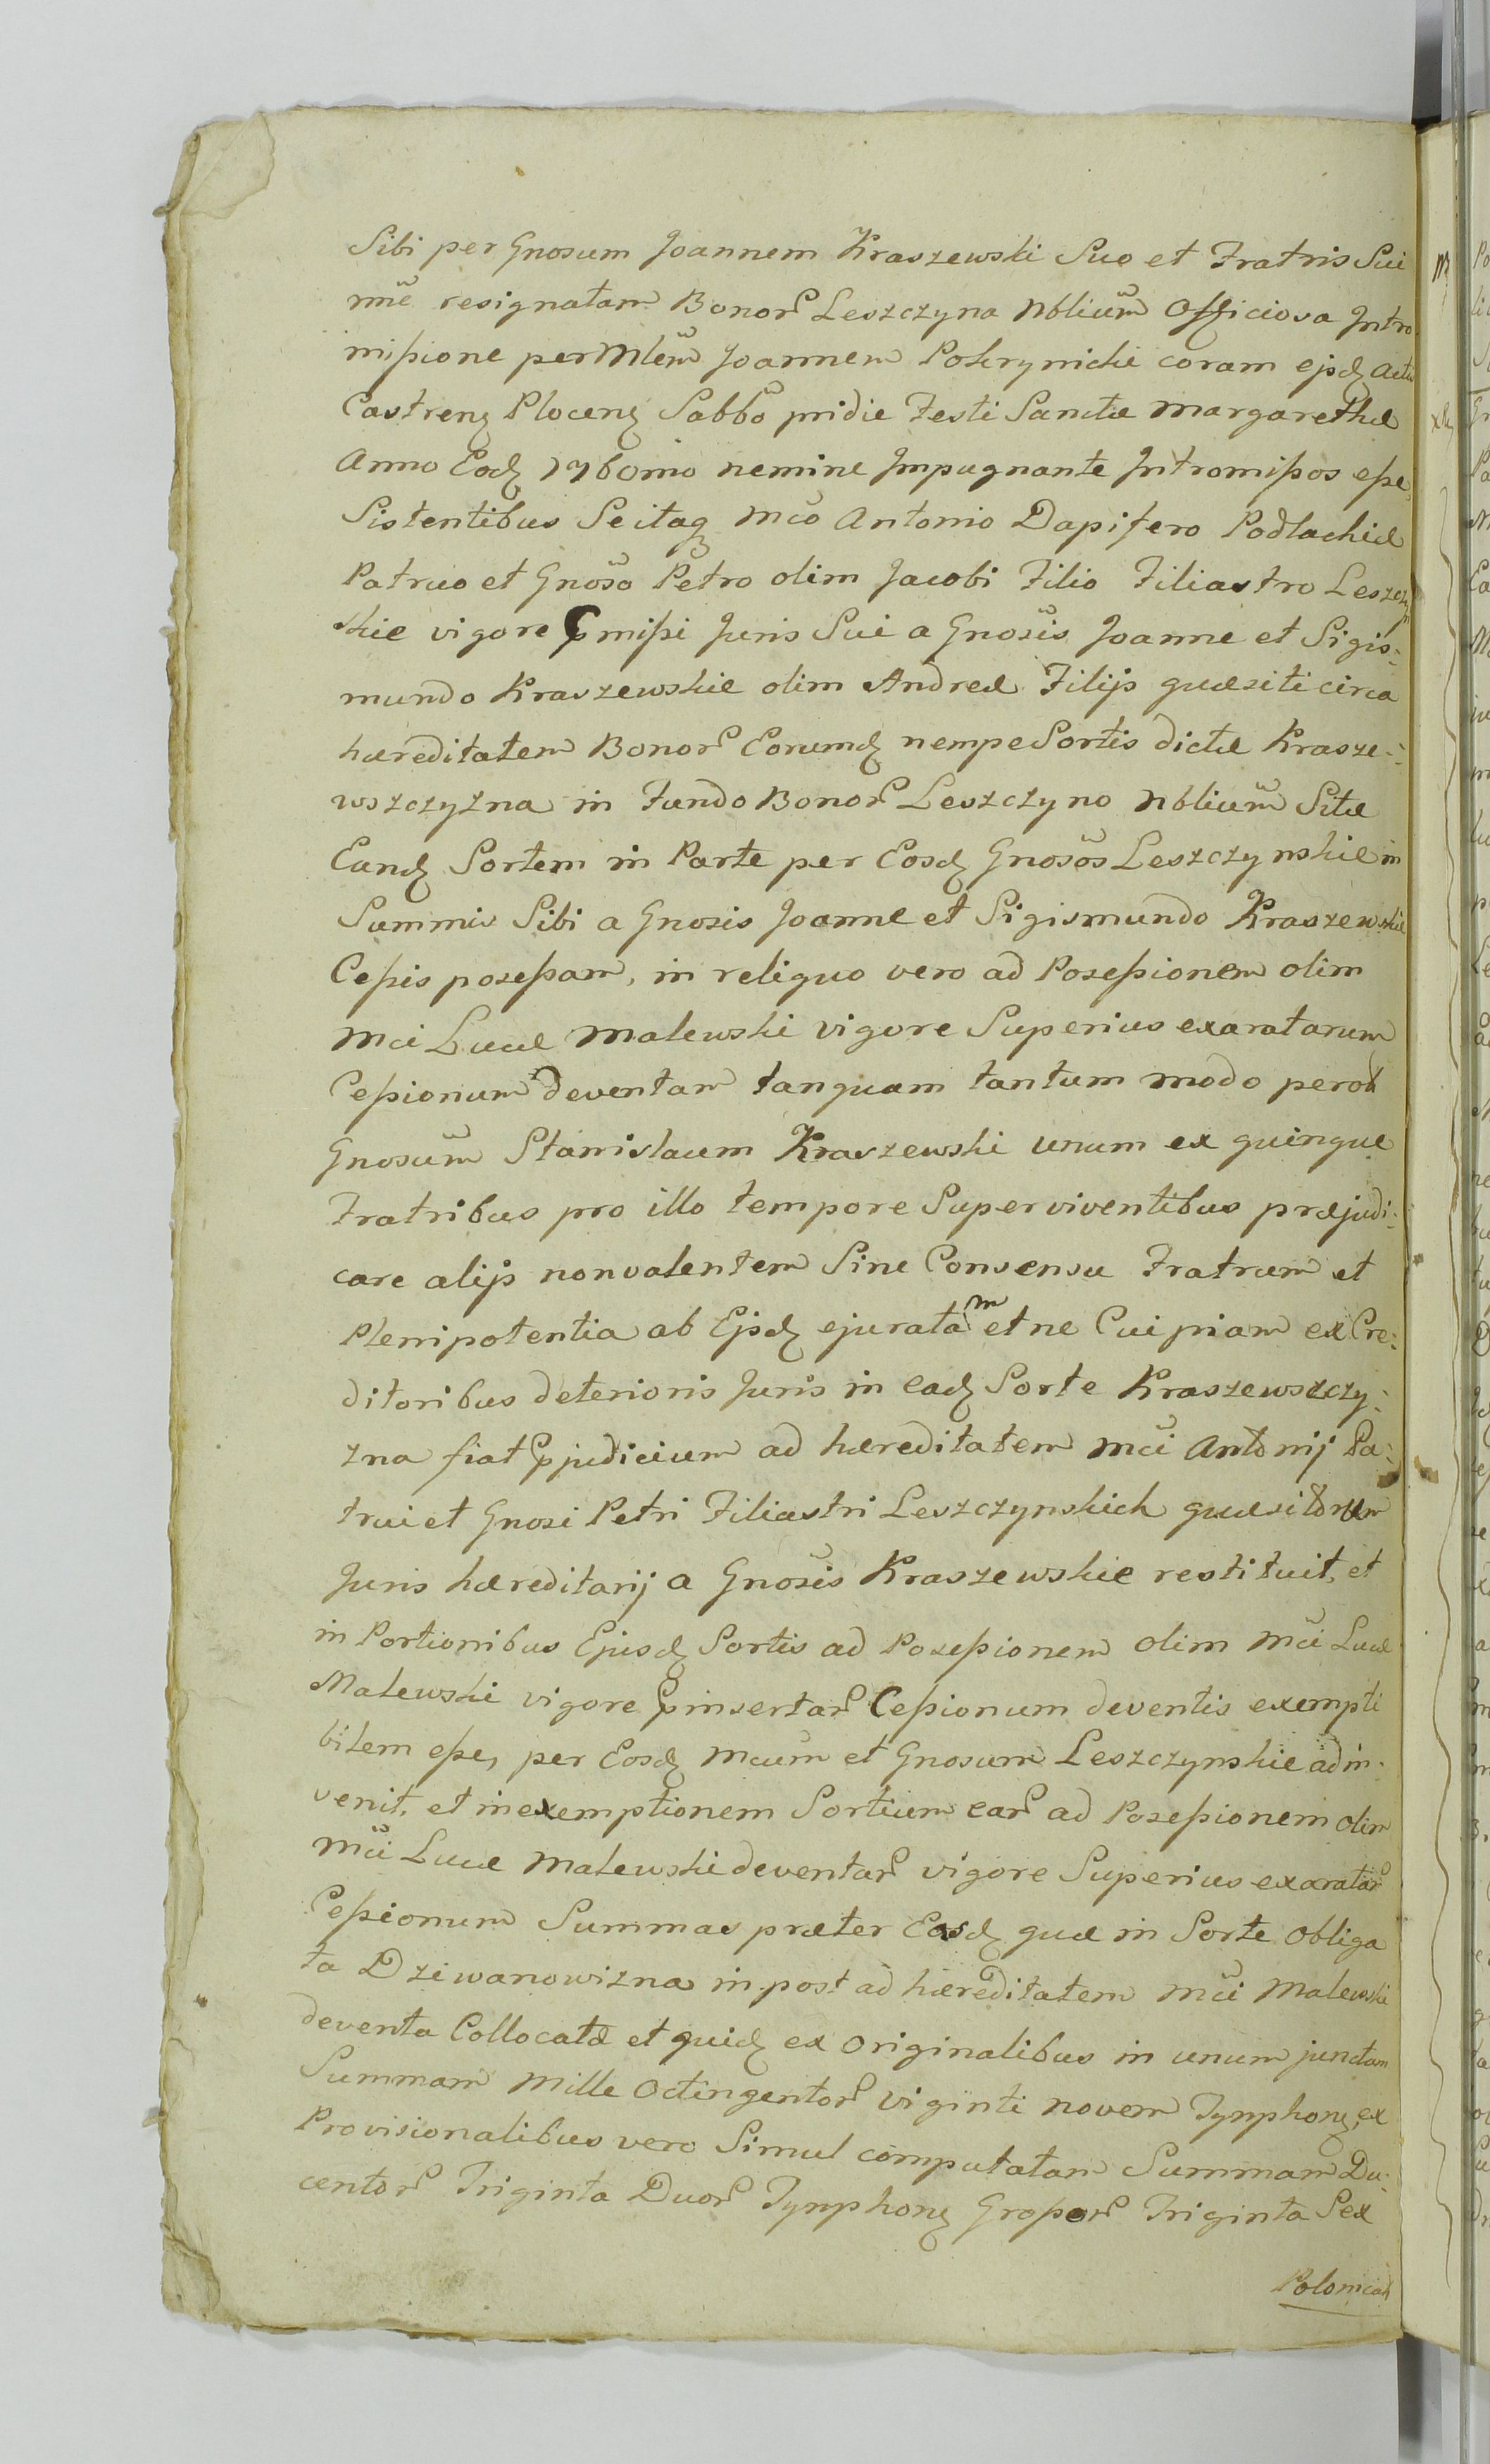 Sibi per Gnosum Joannem Kraszewski Suo et Fratris Sui
nne resignatam Bonor Leszczyna Nblium Officiosa Intro
mißione per Mlem Joannem Pokrynicki coram ejsd Actis
Castren Plocen Sabbo pridie Festi Sanctæ Margarethæ
Anno Eod 1760mo nemine Impugnante Intromißos eße
Sistentibus Se itaq Mco Antonio Dapifero Podlachiæ
Patruo et Gnoso Petro olim Jacobi Filio Filiastro Leszczyn
skie vigore pmißi Juris Sui a Gnosis Joanne et Sigis:
mundo Kraszewskie olim Andreæ Filijs quæsiti circa
hæreditatem Bonor Eorumd nempe Sortis dictæ Krasze:
wszczyzna in Fundo Bonor Leszczyno Nblium Sitæ
Eand Sortem in Parte per Eosd Gnosos Leszczynskie in
Summis Sibi a Gnosis Joanne et Sigismundo Kraszewskie
Ceßis poseßam, in reliquo vero ad Poseßionem olim
Mci Lucæ Malewski vigore Superius exaratarum
Ceßionum deventam tanquam tantum modo per od
Gnosum Stanislaum Kraszewski unum ex quinque
Fratribus pro illo tempore Superviventibus præjudi:
care alijs non valentem Sine Consensu Fratrum et
Plenipotentia ab Ejsd ejuratam et ne Cuipiam ex Cre:
ditoribus deterioris Juris in ead Sorte Kraszewszczy:
zna fiat pjudicium ad hæreditatem Mci Antonij Pa:
trui et Gnosi Petri Filiastri Leszczynskich quæsitorum
Juris hæreditarij a Gnosis Kraszewskie restituit, et
in Portionibus Ejusd Sortis ad Poseßionem olim Mci Lucæ
Malewski vigore pinsertar Ceßionum deventis exempti
bilem eße, per Eosd Mcum et Gnosum Leszczynskie adin:
venit, et in exemptionem Sortium ear ad Poseßionem olim
Mci Lucæ Malewski deventar vigore Superius exaratar
Ceßionum Summas præter Easd quæ in Sorte obliga
ta Dziwanowizna in post ad hæreditatem Mci Malewski
deventa Collocatæ et quid ex Originalibus in unum junctam
Summam Mille Octingentor viginti novem Tynphon, ex
Provisionalibus vero Simul computatam Summam Du:
centor Triginta Duor Tynphon Großor Triginta Sex
Polonical